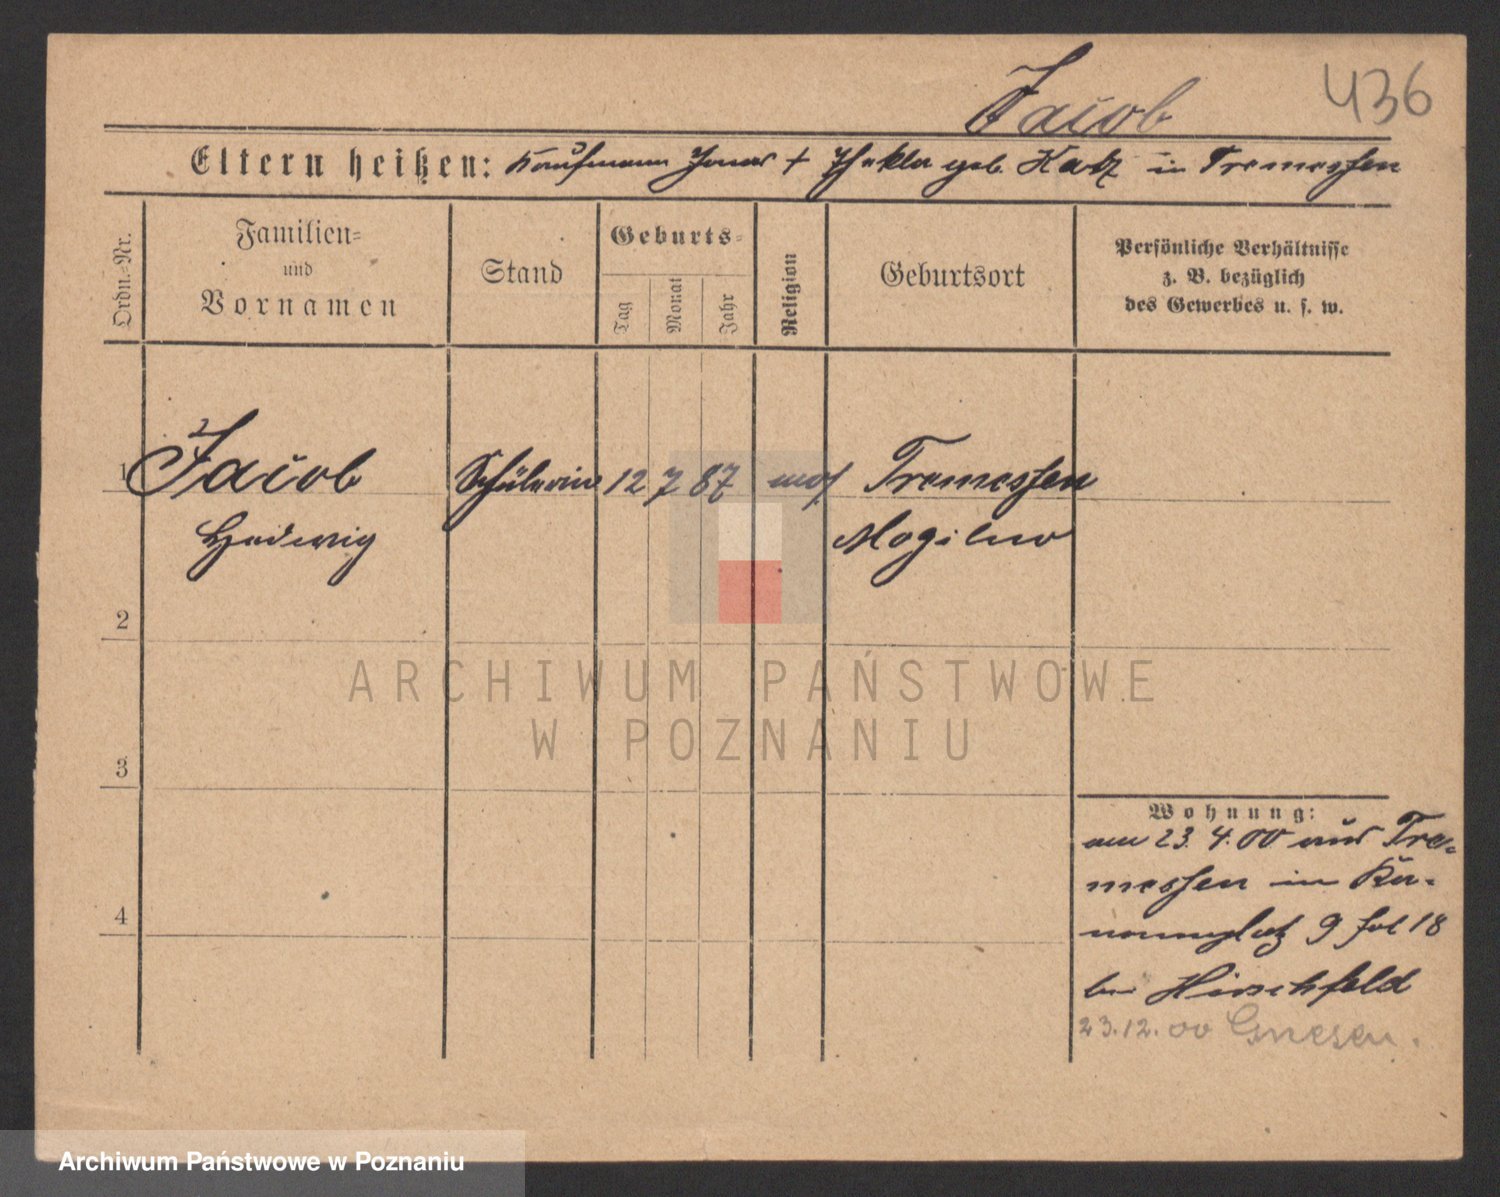 Jacob
436
Eltern heißen: Kaufmann Jonas + Thekla geb. Katz in Tremessen
Ordn.-Nr.
Familien-
und
Vornamen
Stand
Geburts-
Tag
Monat
Jahr
Religion
Geburtsort
Persönliche Verhältnisse
z. B. bezüglich
des Gewerbes u. s. w.
1 Jacob Schülerin 12 7 87 mos Tremessen
Hedwig Mogilno
2
3
4
Wohnung:
am 23. 4. 00 aus Tre-
messen in Ka-
nonenplatz 9 fol 18
bei Hirschfeld
23.12.00 Gnesen.
ARCHIWUM PAŃSTWOWE
W POZNANIU
Archiwum Państwowe w Poznaniu